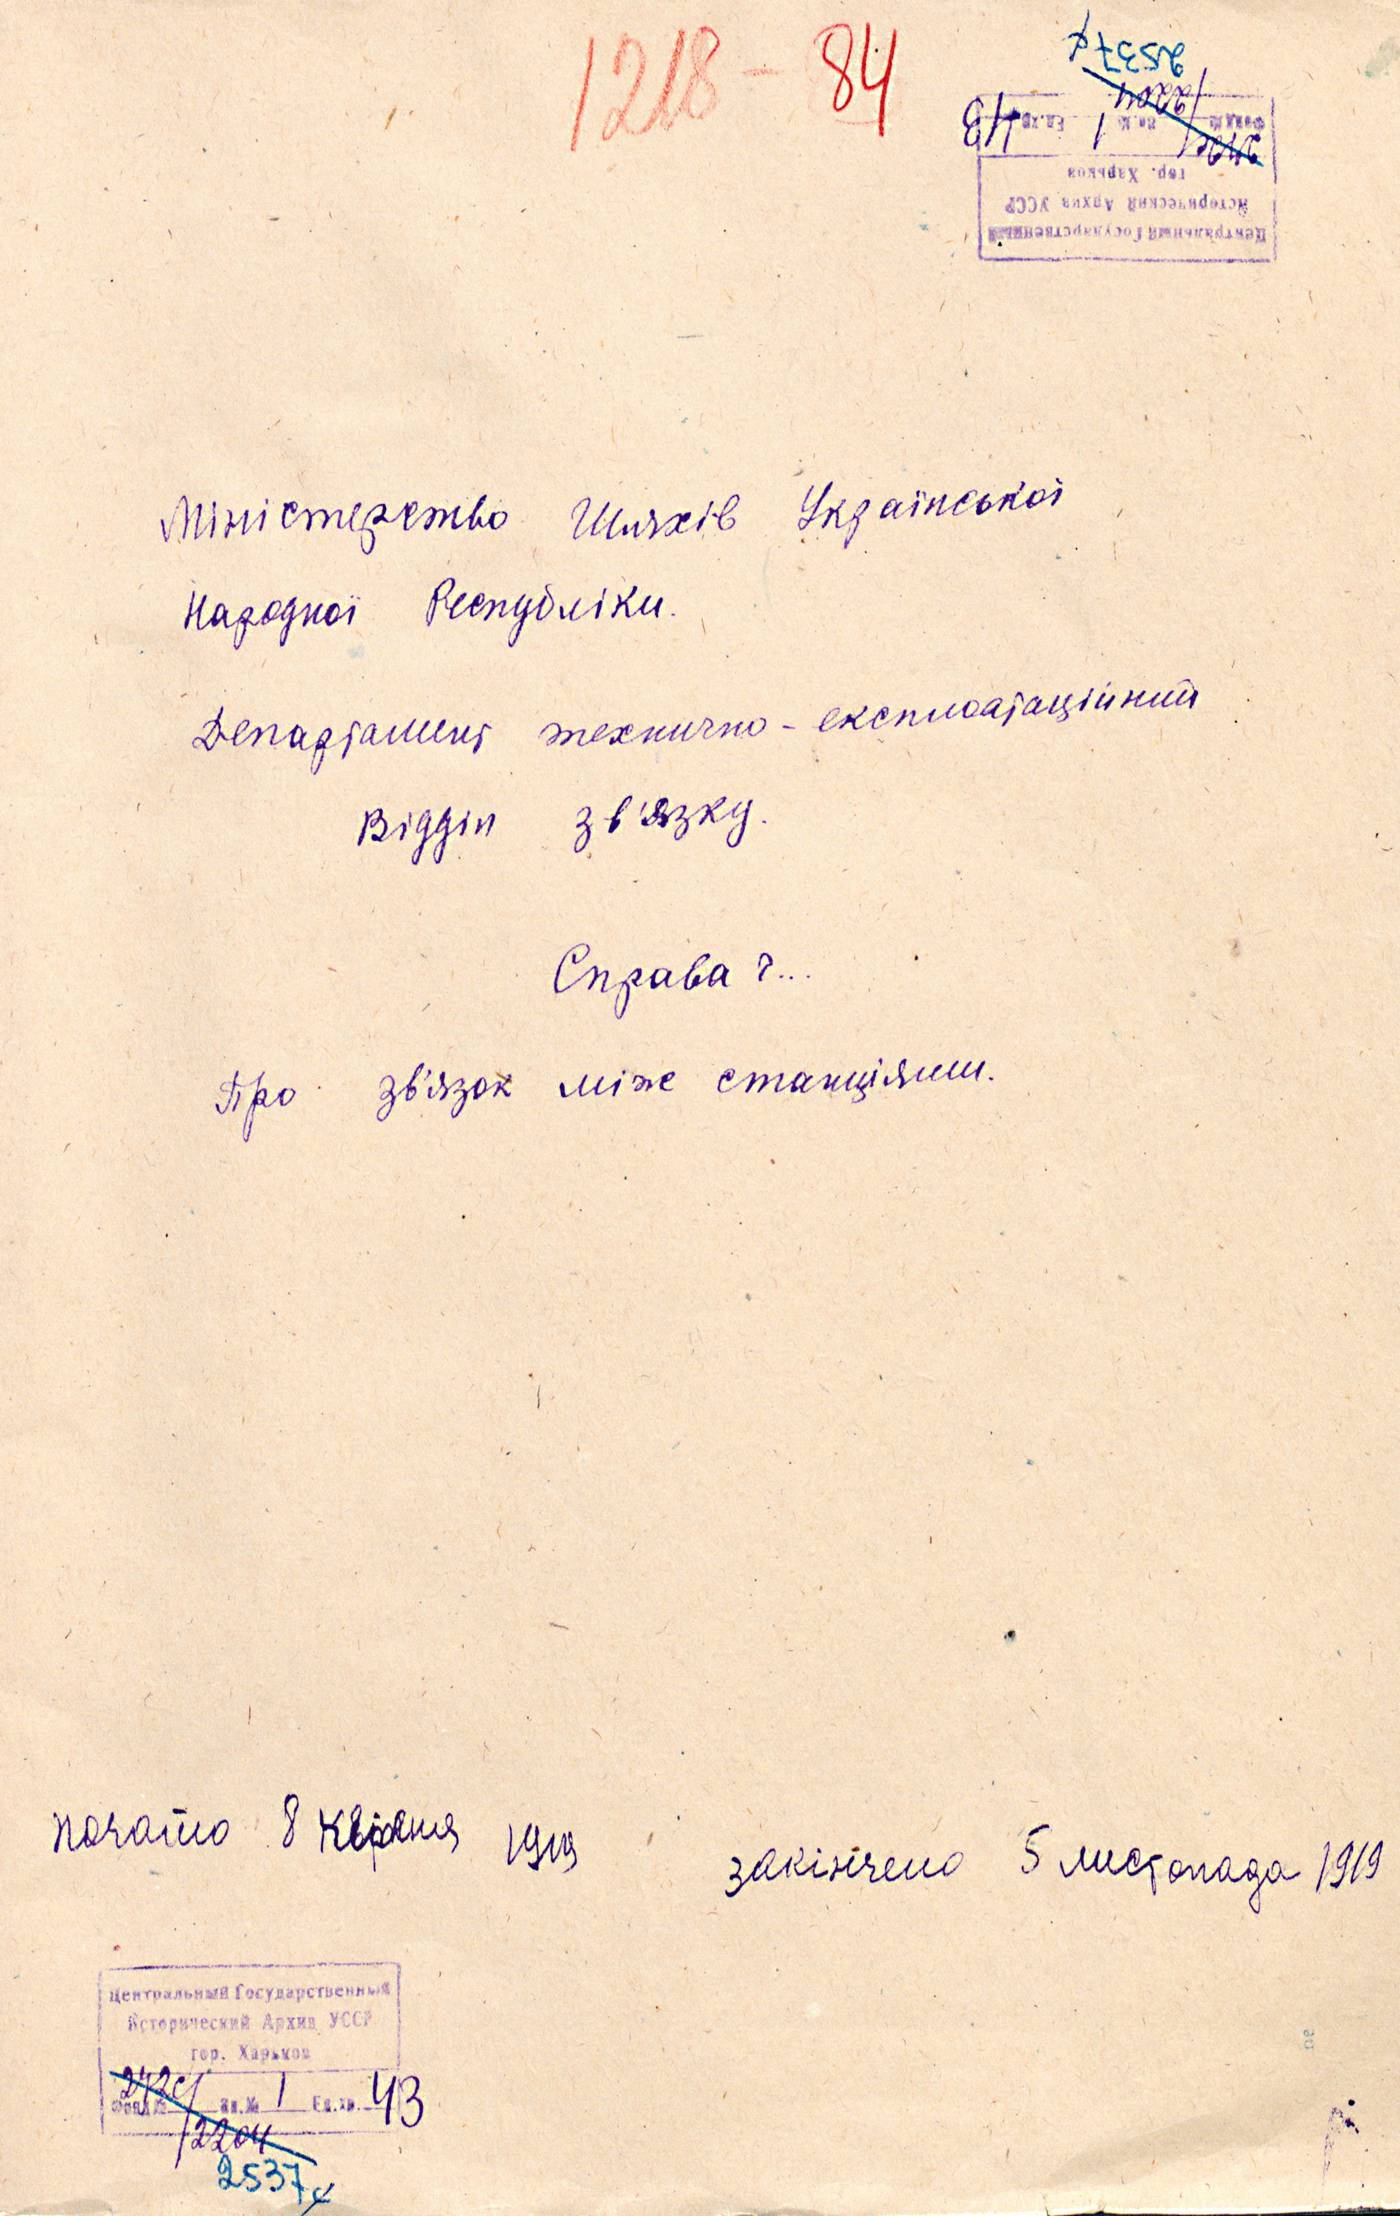 1218 - 84
2537
2204
Фонд № Оп.№ 1 Ед.хр. 43
Центральный Государственный
Исторический Архив УССР
гор. Харьков
Міністерство Шляхів Української
Народної Республіки.
Департамент технично-експлоатаційний
Відділ зв'язку.
Справа ч...
Про зв'язок між станціями.
почато 8 квітня 1919
закінчено 5 листопада 1919
Центральный Государственный
Исторический Архив УССР
гор. Харьков
Фонд № Оп.№ 1 Ед.хр. 43
2204
2537